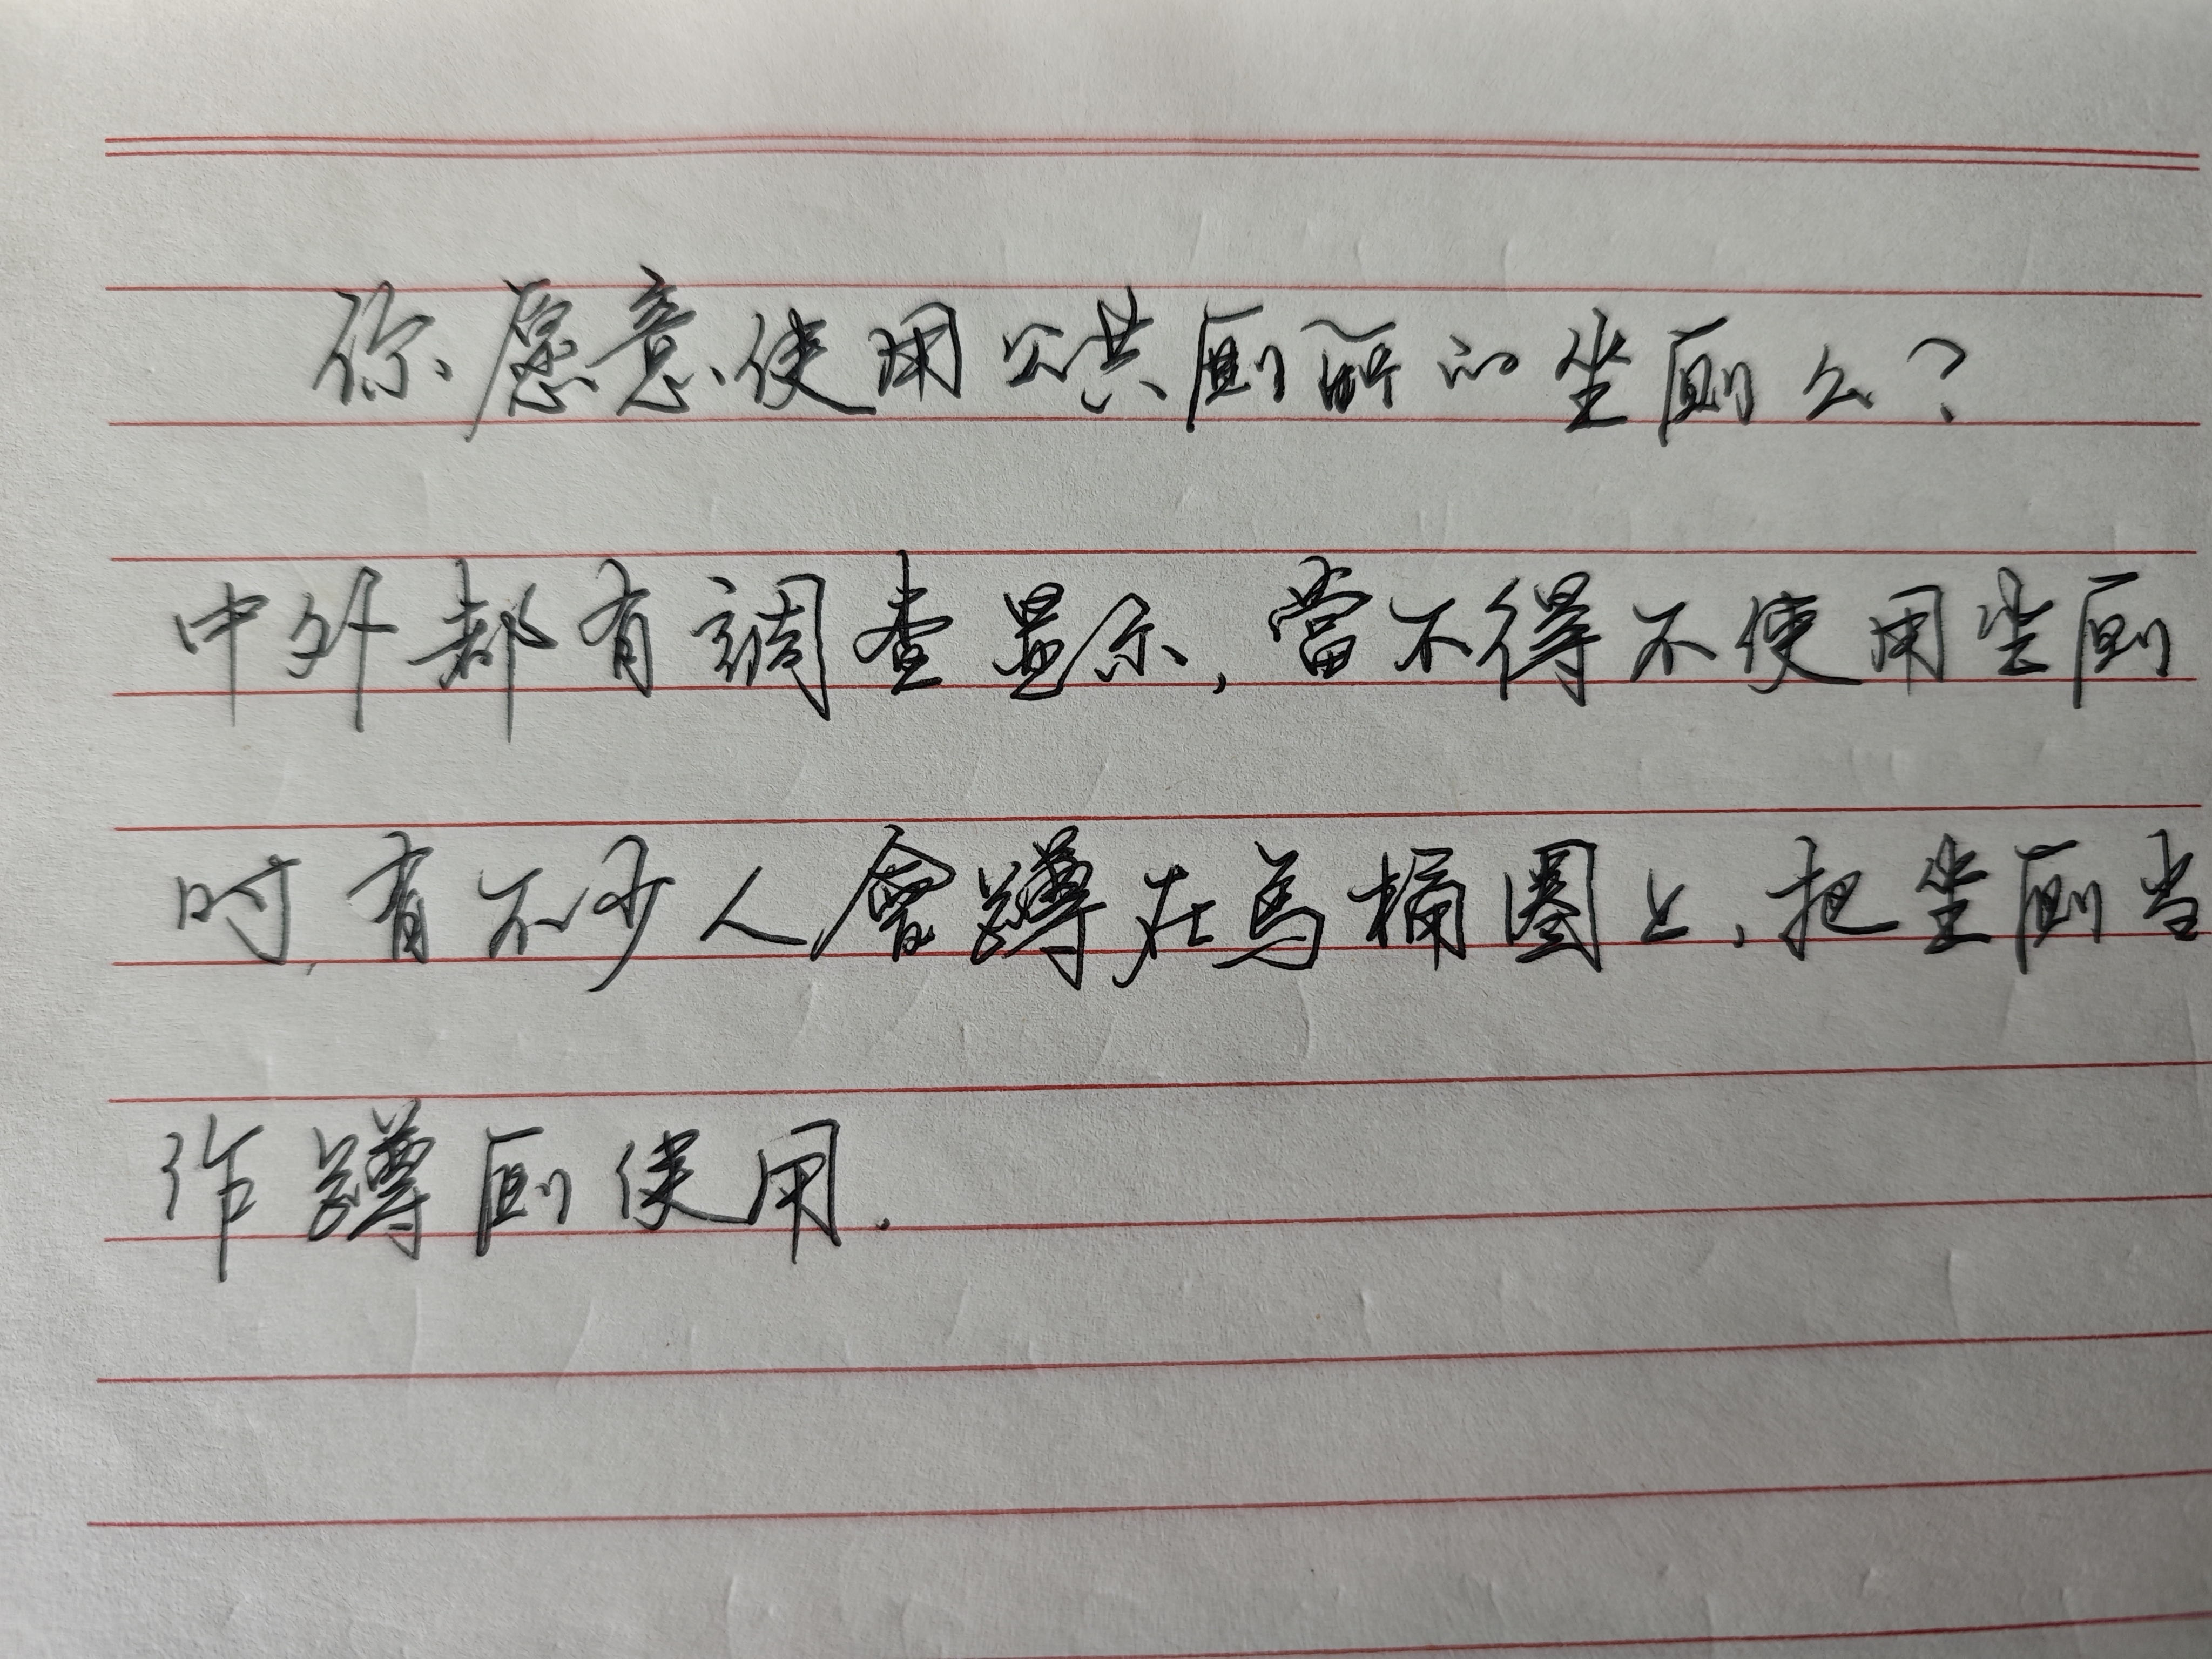 你愿意使用公共厕所的坐厕么?
中外都有調查显示,當不得不使用坐厕
时,有不少人會蹲在馬桶圈上,把坐厕当
作蹲厕使用.